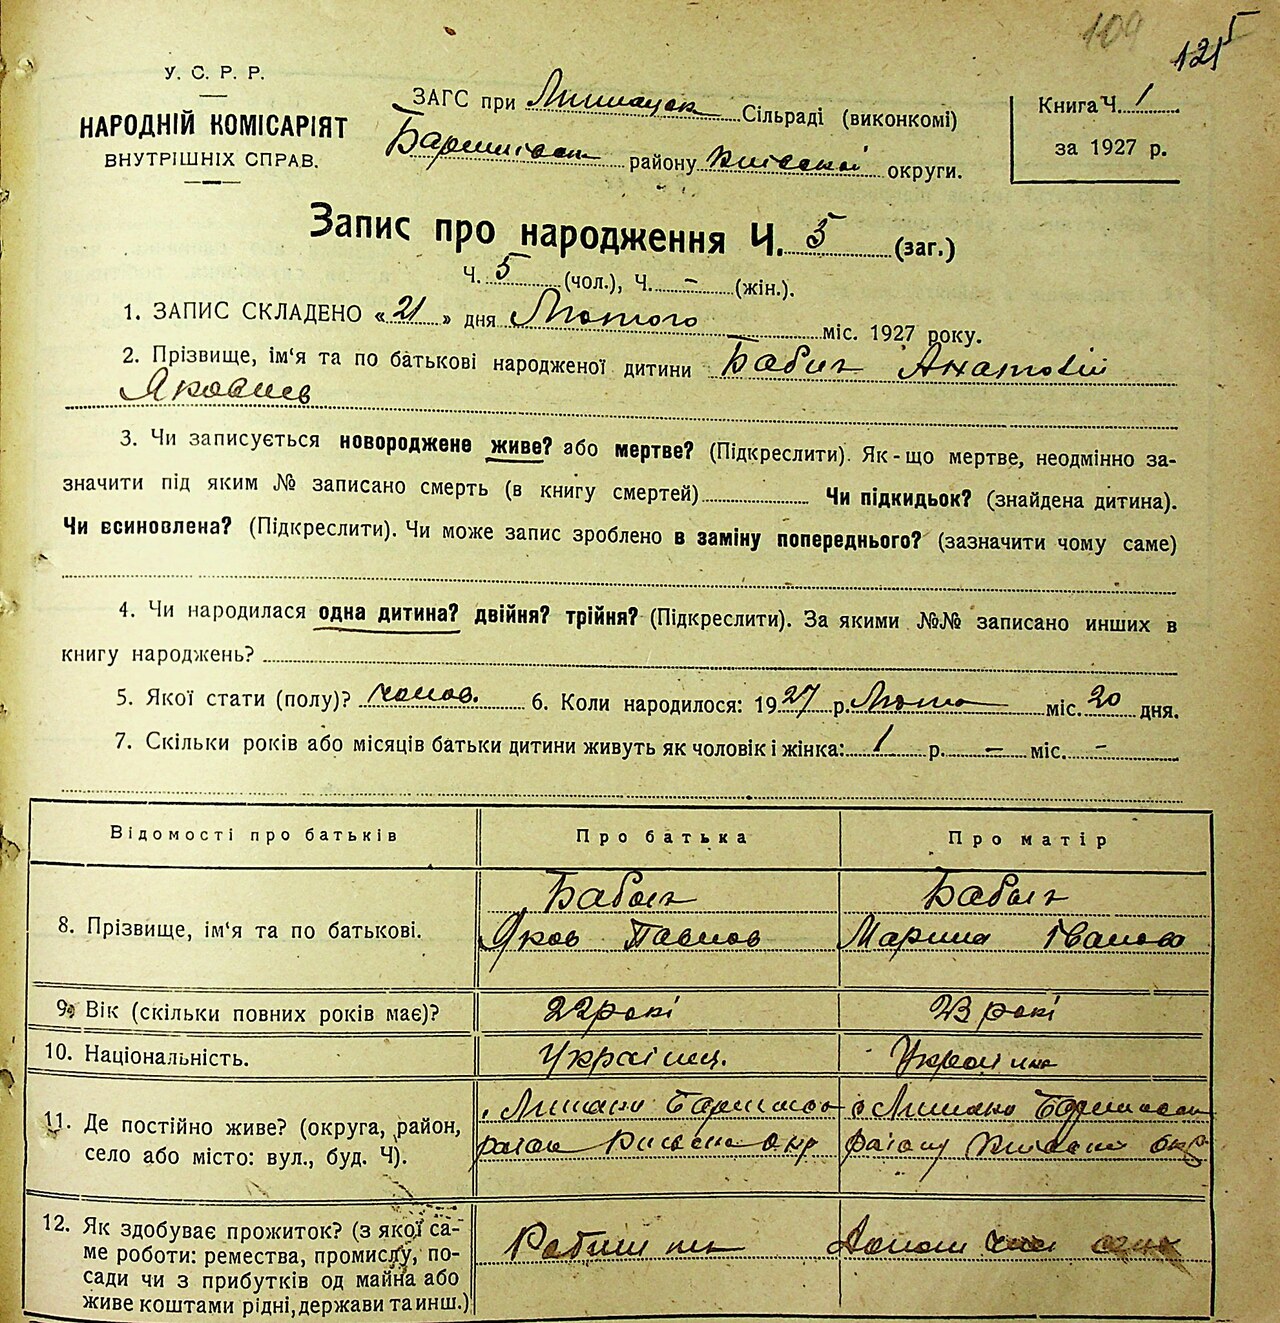 109
121
У. С. Р. Р.
НАРОДНІЙ КОМІСАРІЯТ
ВНУТРІШНІХ СПРАВ.
ЗАГС при Сільраді (виконкомі)
району Київської округи.
Книга Ч. 1
за 1927 р.
Запис про народження Ч. 5 (заг.)
Ч. 5 (чол.), Ч. – (жін.).
1. ЗАПИС СКЛАДЕНО «21» дня Лютого міс. 1927 року.
2. Прізвище, ім'я та по батькові народженої дитини Бабич Анатолій
Яковлев
3. Чи записується новороджене живе? або мертве? (Підкреслити). Як-що мертве, неодмінно за-
значити під яким № записано смерть (в книгу смертей) Чи підкидьок? (знайдена дитина).
Чи всиновлена? (Підкреслити). Чи може запис зроблено в заміну попереднього? (зазначити чому саме)
4. Чи народилася одна дитина? двійня? трійня? (Підкреслити). За якими №№ записано инших в
книгу народжень?
5. Якої стати (полу)? чолов. 6. Коли народилося: 1927 р. Люто міс. 20 дня.
7. Скільки років або місяців батьки дитини живуть як чоловік і жінка: 1 р. – міс. –
Відомості про батьків
Про батька
Про матір
8. Прізвище, ім'я та по батькові.
Бабич
Яков Павлов
Бабич
Марина Іванова
9. Вік (скільки повних років має)?
22 рокі
23 рокі
10. Національність.
Українец.
Українка
11. Де постійно живе? (округа, район,
село або місто: вул., буд. Ч).
12. Як здобуває прожиток? (з якої са-
ме роботи: ремества, промислу, по-
сади чи з прибутків од майна або
живе коштами рідні, держави та инш.)